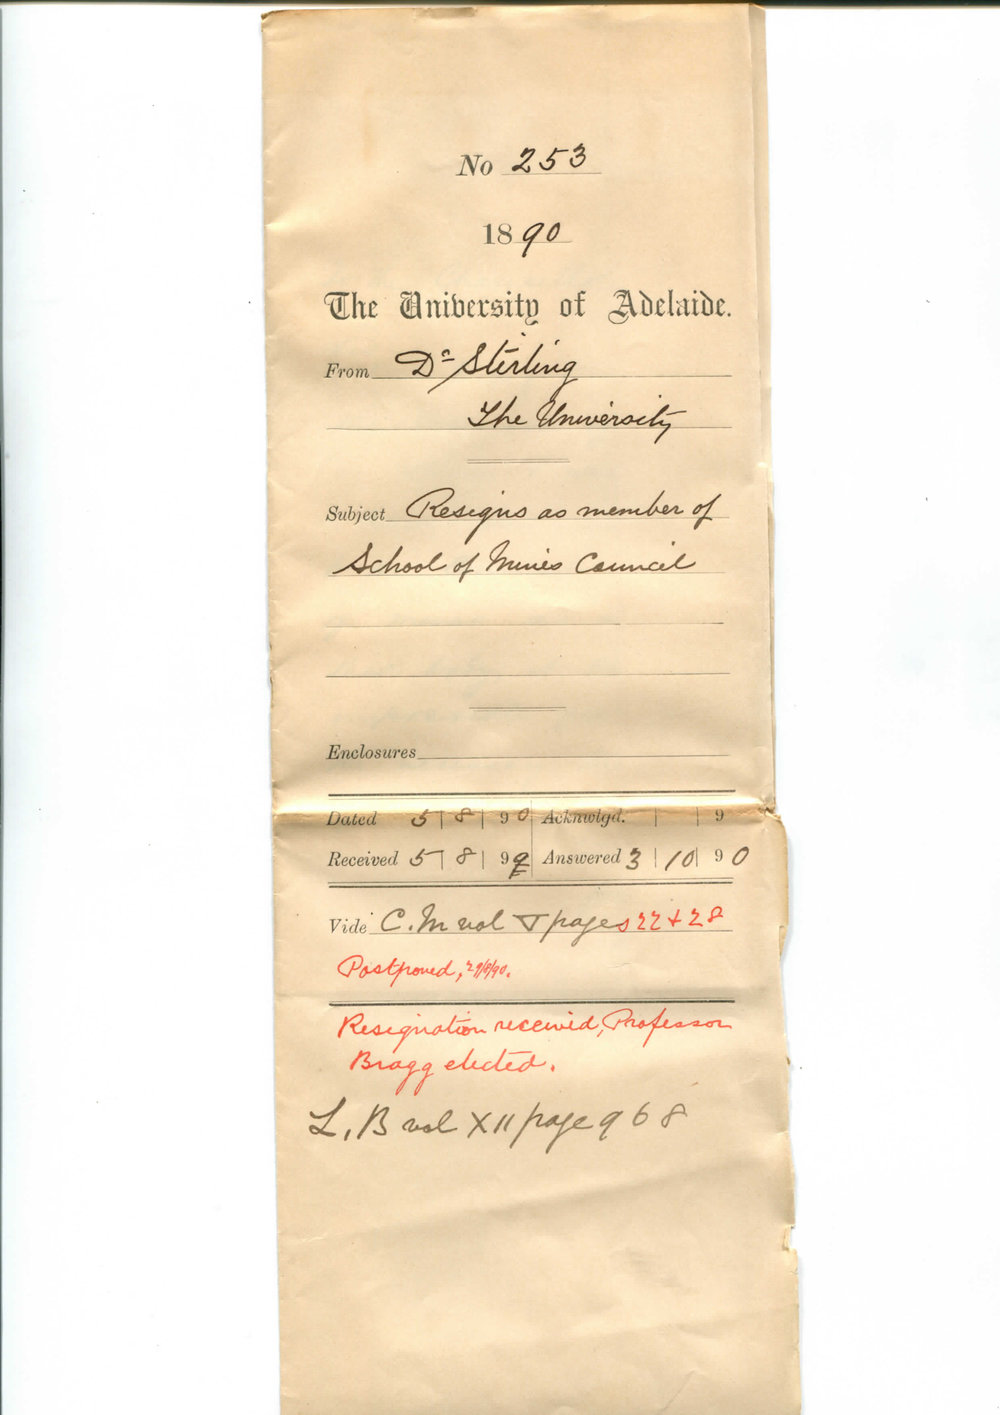 No 253
1890
The University of Adelaide.
From Dr Stirling
The University
Subject Resigns as member of
School of Mines Council
Enclosures
Dated 5 | 8 | 90 Acknwlgd. | | 9
Received 5 | 8 | 90 Answered 3 | 10 | 90
Vide C.M vol V pages 22 + 28
Postponed, 29/8/90.
Resignation received, Professor
Bragg elected.
L.B vol XII page 968